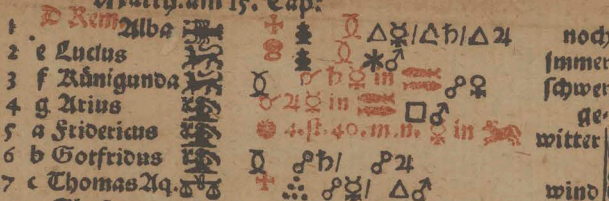 Matth. am 15. Cap:
1 D Rem. Alba △☿/△♄/△♃ noch
2 e Lucius ✶♂ immer
3 f Künigunda ☌♄☿ in ♓ ☍♀ schwer
4 g Arius ☌♃☿ in ♓ □♂ ge-
5 a Fridericus 4. st. 40. m. n. ☿ in witter
6 b Gotfridus ☍♄/ ☍♃
7 c Thomas Aq. ☍☿/ △♂ wind